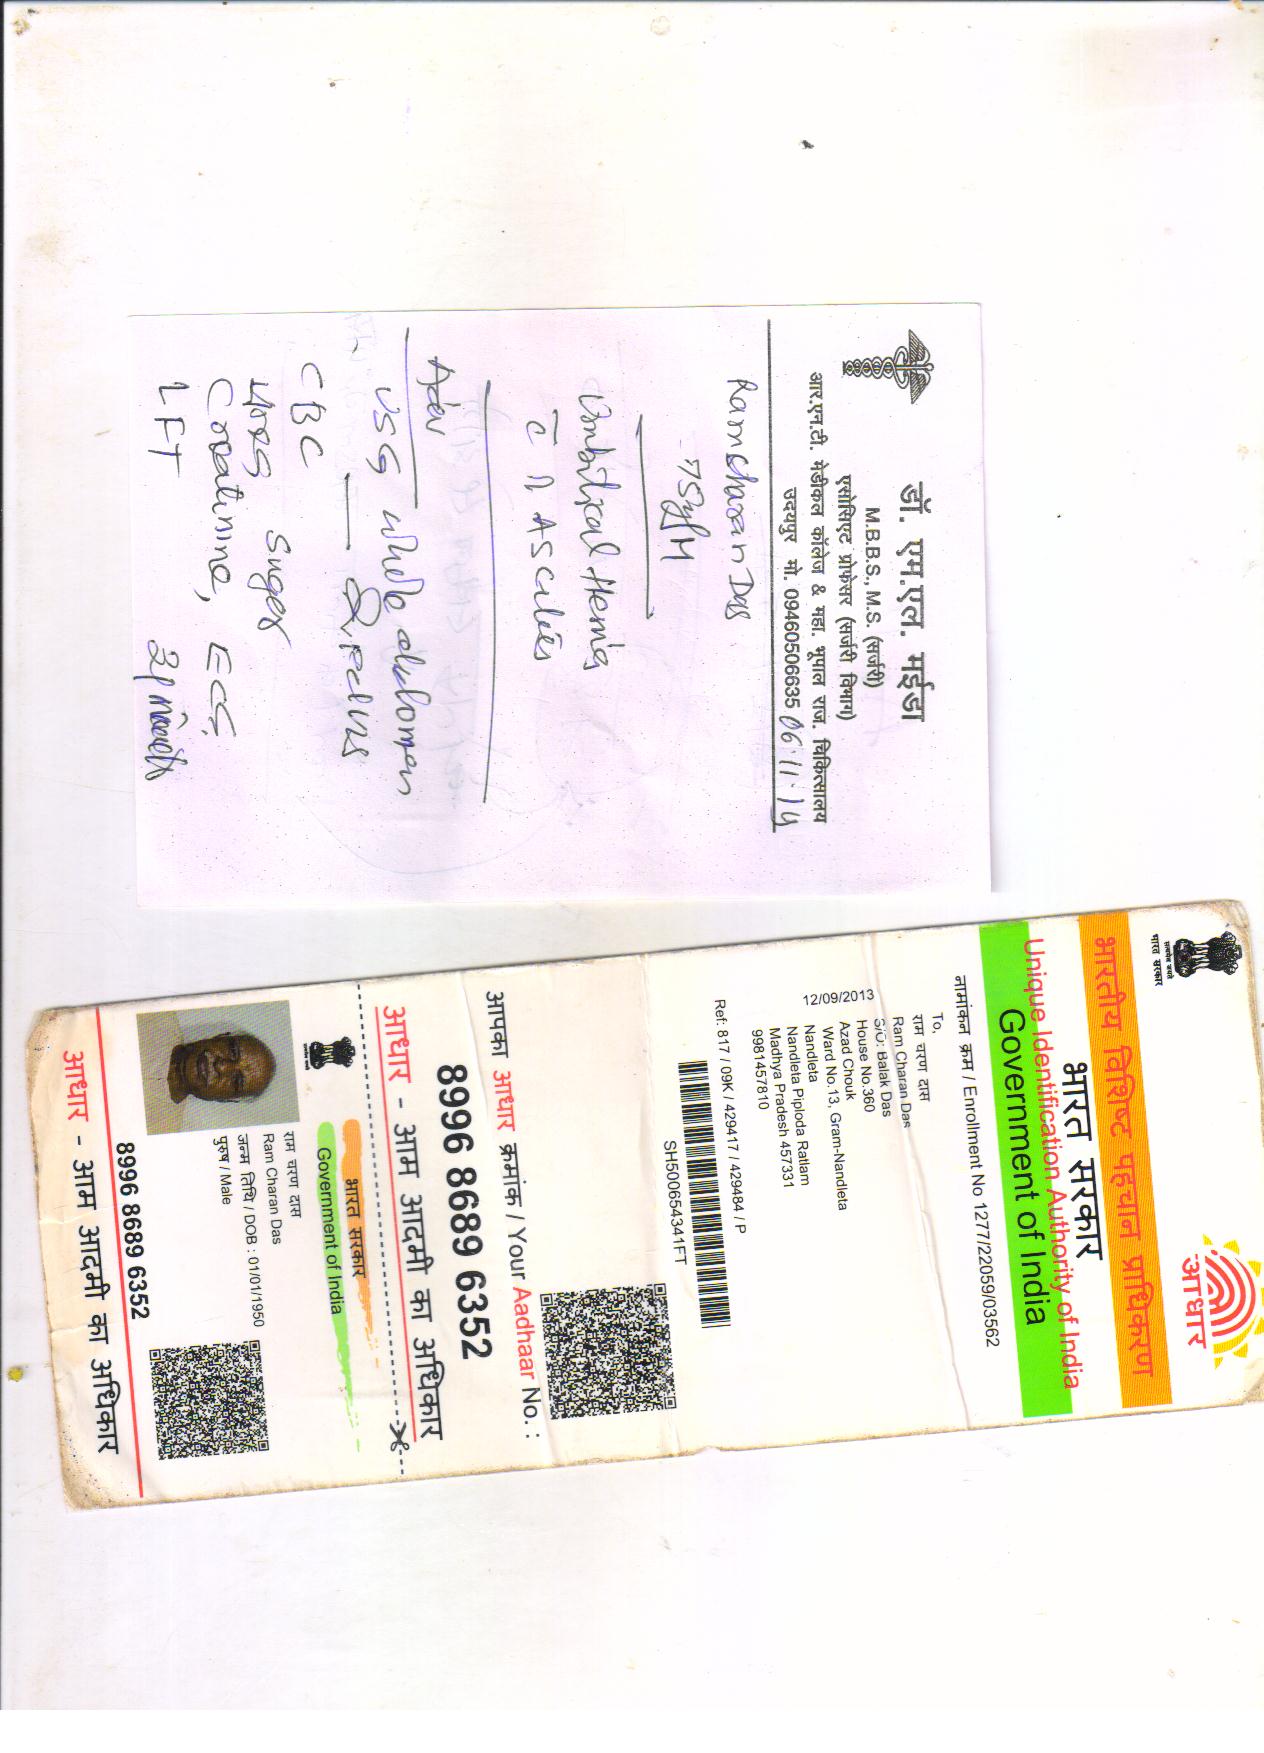 डॉ. एम.एल. मईडा
M.B.B.S., M.S. (सर्जरी)
एसोसिएट प्रोफेसर (सर्जरी विभाग)
आर.एन.टी. मेडीकल कॉलेज & महा. भूपाल राज. चिकित्सालय
उदयपुर मो. 09460506635
06.11.14
Ramcharan Das
75y/M
Umbilical Hernia
c Ascites
Adv
USG whole abdomen
& Pelvis
CBC
Sugar
Creatinine, ECG
LFT
भारत सरकार
आधार
भारतीय विशिष्ट पहचान प्राधिकरण
भारत सरकार
Unique Identification Authority of India
Government of India
नामांकन क्रम / Enrollment No 1277/22059/03562
To,
राम चरण दास
Ram Charan Das
S/O: Balak Das
House No.360
Azad Chouk
Ward No.13, Gram-Nandleta
Nandleta
Nandleta Piploda Ratlam
Madhya Pradesh 457331
9981457810
12/09/2013
Ref: 817 / 09K / 429417 / 429484 / P
SH500654341FT
आपका आधार क्रमांक / Your Aadhaar No. :
8996 8689 6352
आधार - आम आदमी का अधिकार
भारत सरकार
Government of India
राम चरण दास
Ram Charan Das
जन्म तिथि / DOB : 01/01/1950
पुरुष / Male
8996 8689 6352
आधार - आम आदमी का अधिकार